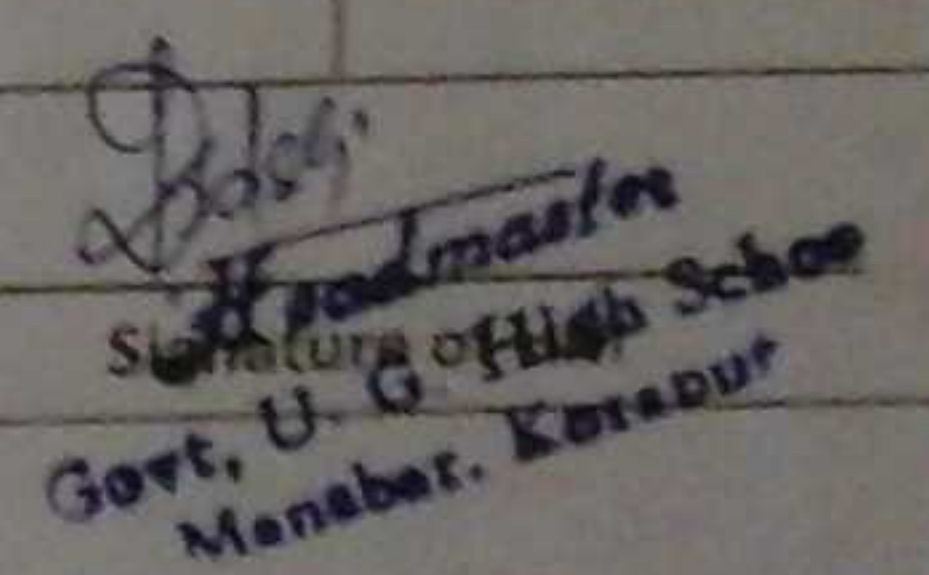 Headmaster
Signature of
Govt, U. G High Schoo
Menabar. Koraput